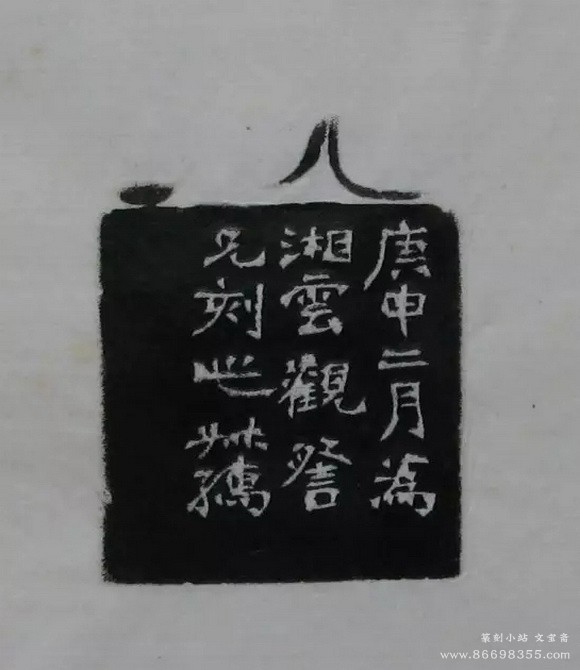 庚申二月為
湘雲觀詧
兄刻
篆刻小站 文玄斋
www.86698355.com